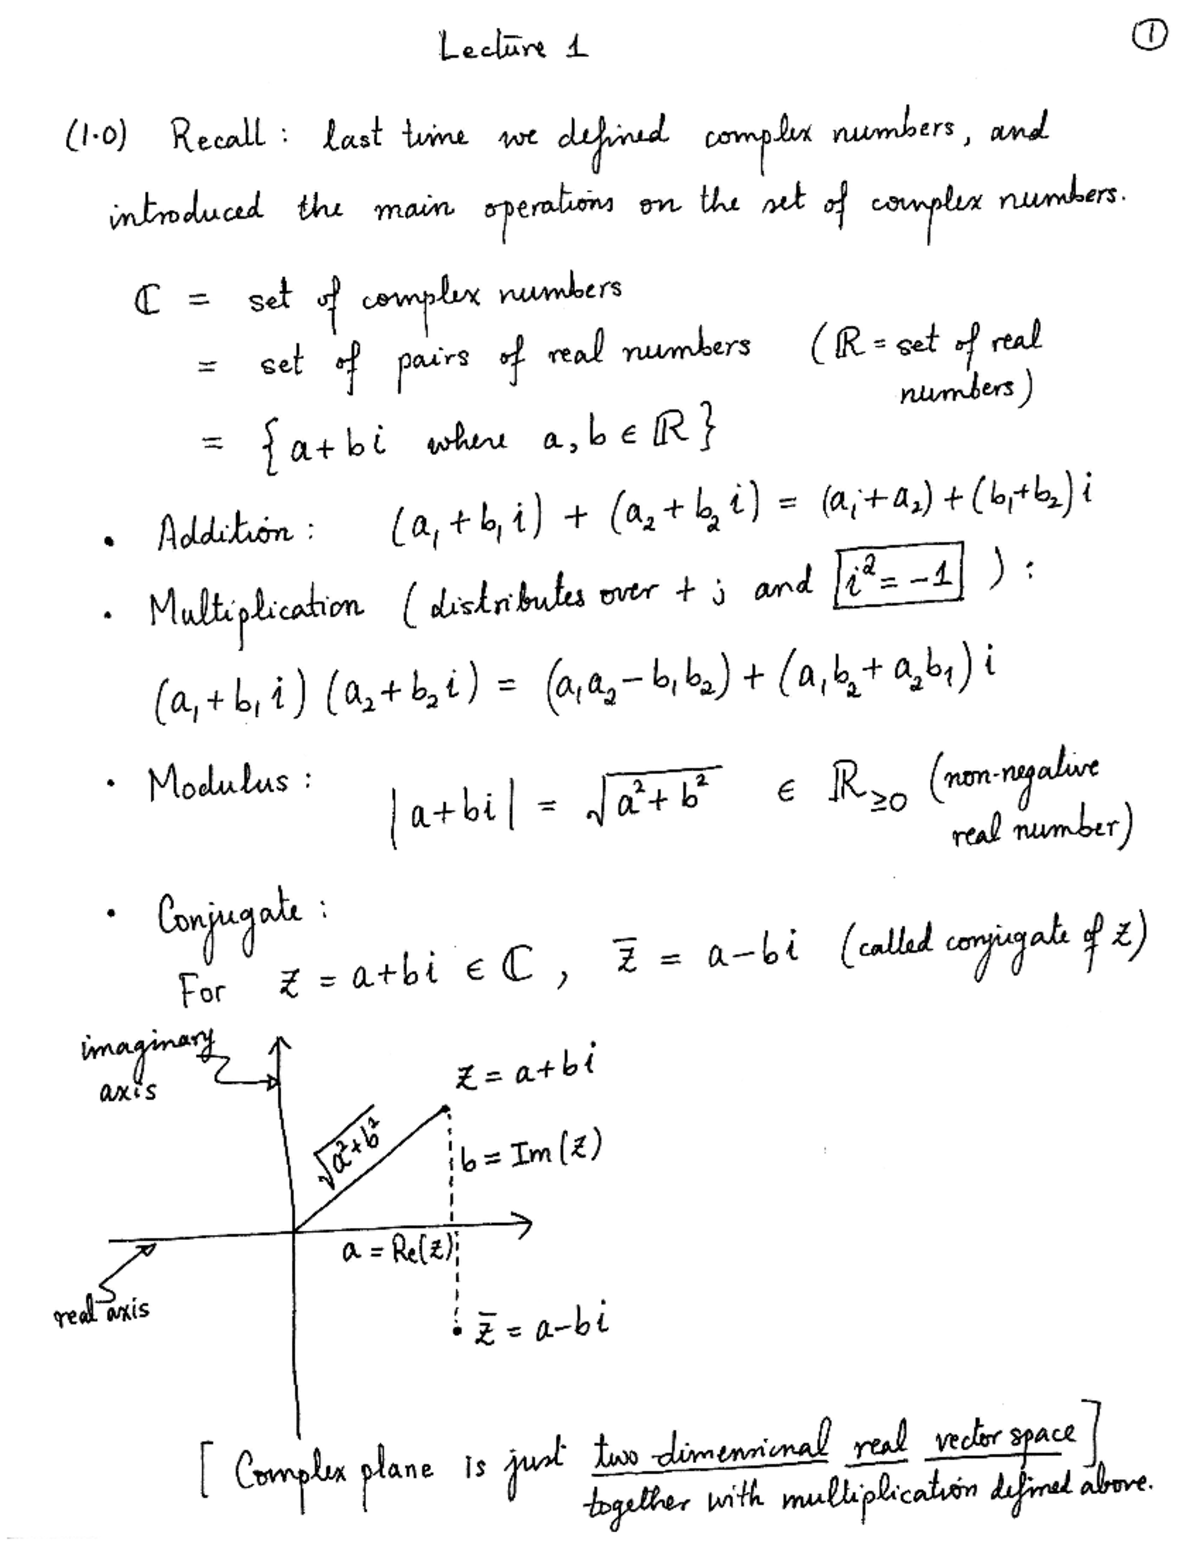 Lecture 1
①
(1.0) Recall : last time we defined complex numbers, and
introduced the main operations on the set of complex numbers.
ℂ = set of complex numbers
= set of pairs of real numbers (ℝ = set of real
numbers)
= { a + b i where a, b ∈ ℝ }
• Addition : (a₁ + b₁ i) + (a₂ + b₂ i) = (a₁ + a₂) + (b₁ + b₂) i
• Multiplication ( distributes over + ; and i² = -1 ) :
(a₁ + b₁ i) (a₂ + b₂ i) = (a₁a₂ - b₁b₂) + (a₁b₂ + a₂b₁) i
• Modulus : |a + b i| = √(a² + b²) ∈ ℝ≥0 (non-negative
real number)
• Conjugate :
For z = a + b i ∈ ℂ , z̄ = a - b i (called conjugate of z)
imaginary
axis
z = a + b i
√(a² + b²)
b = Im (z)
a = Re(z)
real axis
z̄ = a - b i
[ Complex plane is just two-dimensional real vector space ]
together with multiplication defined above.